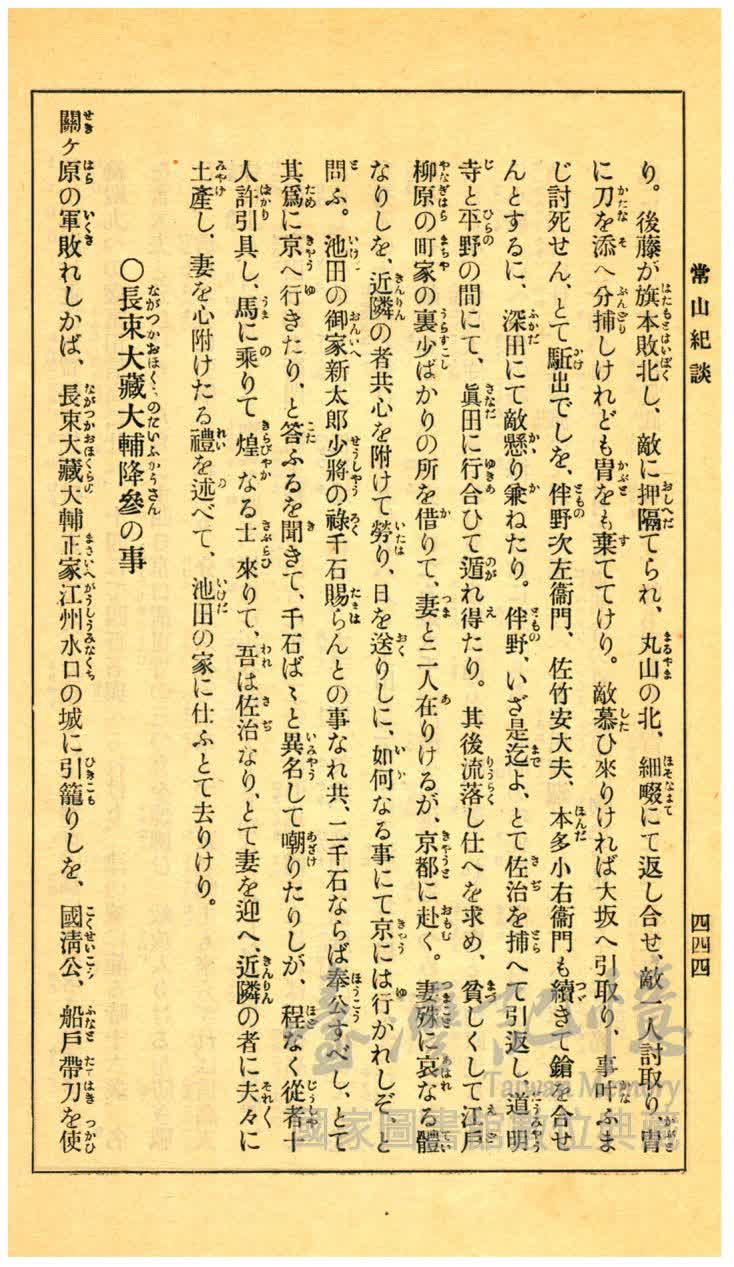 常山紀談
四四四
り。後藤が旗本敗北し、敵に押隔てられ、丸山の北、細畷にて返し合せ、敵一人討取り、冑
に刀を添へ分捕しけれども冑をも棄ててけり。敵慕ひ來りければ大坂へ引取り、事叶ふま
じ討死せん、とて駈出でしを、伴野次左衞門、佐竹安大夫、本多小右衞門も續きて鎗を合せ
んとするに、深田にて敵懸り兼ねたり。伴野、いざ是迄よ、とて佐治を捕へて引返し、道明
寺と平野の間にて、眞田に行合ひて遁れ得たり。其後流落し仕へを求め、貧しくして江戸
柳原の町家の裏少ばかりの所を借りて、妻と二人在りけるが、京都に赴く。妻殊に哀なる體
なりしを、近隣の者共心を附けて勞り、日を送りしに、如何なる事にて京には行かれしぞ、と
問ふ。池田の御家新太郎少將の祿千石賜らんとの事なれ共、二千石ならば奉公すべし、とて
其爲に京へ行きたり、と答ふるを聞きて、千石ばゝと異名して嘲りたりしが、程なく從者十
人許引具し、馬に乘りて煌なる士來りて、吾は佐治なり、とて妻を迎へ、近隣の者に夫々に
土產し、妻を心附けたる禮を述べて、池田の家に仕ふとて去りけり。
〇長束大藏大輔降參の事
關ヶ原の軍敗れしかば、長束大藏大輔正家江州水口の城に引籠りしを、國淸公、船戸帶刀を使
臺灣記憶
Taiwan Memory
國家圖書館數位典藏